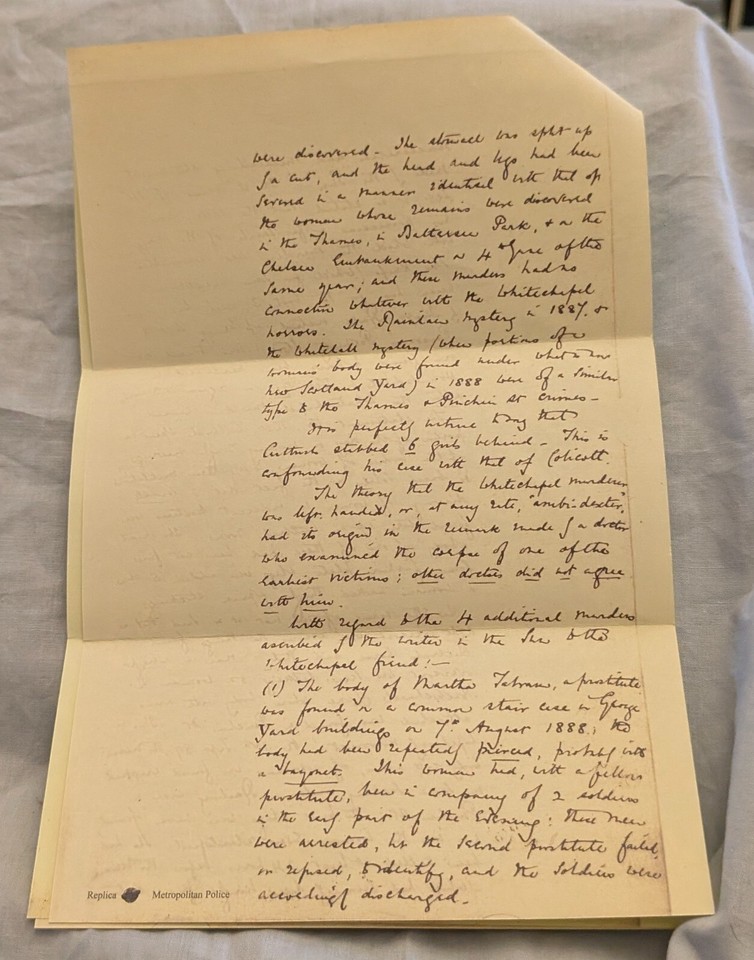 were discovered - The stomach was split up
by a cut, and the head and legs had been
severed in a manner identical with that of
the woman whose remains were discovered
in the Thames, in Battersea Park, & on the
Chelsea Embankment on 4th June of the
same year; and these murders had no
connection whatever with the Whitechapel
horrors. The Rainham mystery in 1887, &
the Whitehall mystery (when portions of a
woman's body were found under what is now
New Scotland Yard) in 1888 were of a similar
type to the Thames & Pinchin St crimes -
It is perfectly untrue to say that
Cutbush stabbed 6 girls behind - This is
confounding his case with that of Colicott.
The theory that the Whitechapel murderer
was left-handed, or, at any rate, "ambi-dexter",
had its origin in the remark made by a doctor
who examined the corpse of one of the
earliest victims; other doctors did not agree
with him.
With regard to the 4 additional murders
ascribed by the writer in the Sun to the
Whitechapel fiend:-
(1) The body of Martha Tabram, a prostitute
was found on a common stair case in George
Yard buildings on 7th August 1888; the
body had been repeatedly pierced, probably with
a bayonet. This woman had, with a fellow
prostitute, been in company of 2 soldiers
in the early part of the evening: these men
were arrested, but the second prostitute failed,
or refused, to identify, and the soldiers were
accordingly discharged -
Replica Metropolitan Police